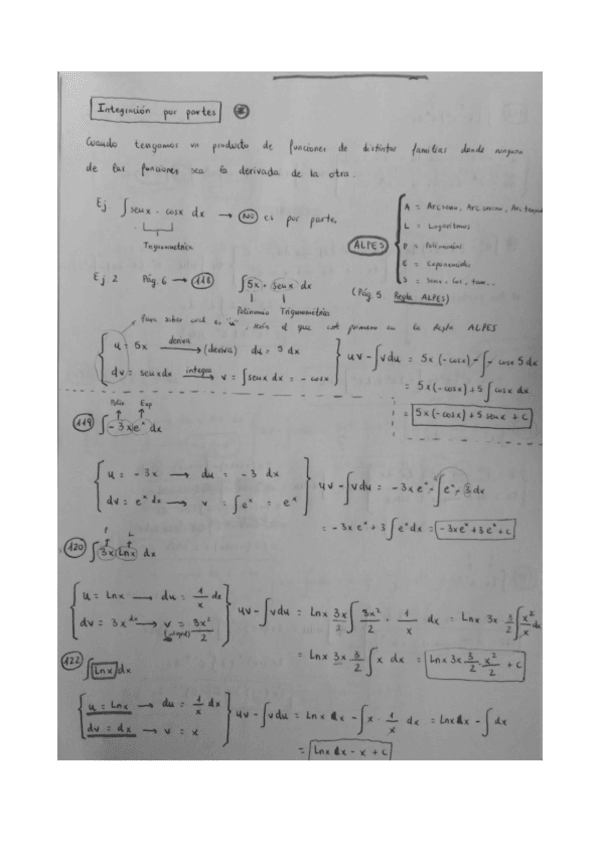 Integración por partes
Cuando tengamos un producto de funciones de distintas familias donde ninguna
de las funciones sea la derivada de la otra.
Ej ∫senx · cosx dx → NO es por parte.
Trigonométrica
ALPES
A = Arcseno, Arc coseno, Arc
L = Logaritmos
P = Polinomios
E = Exponencial
S = Senx, Cos, tan...
(Pág. 5 Regla ALPES)
Ej. 2 Pág. 6 → 118 ∫5x · senx dx
Polinomio Trigonométrica
Para saber cual es "u", sería el que esté primero en la Regla ALPES
u = 5x deriva → (deriva) du = 5 dx
dv = senxdx integra → v = ∫senx dx = - cosx
uv - ∫vdu = 5x(-cosx) - ∫- cosx 5dx
= 5x(-cosx) + 5∫cosx dx
= 5x(-cosx) + 5 senx + c
Polin Exp
119 ∫-3x e^x dx
u = -3x → du = -3 dx
dv = e^x dx → v = ∫e^x = e^x
uv - ∫vdu = -3x e^x - ∫e^x · 3dx
= -3x e^x + 3∫e^x dx = -3xe^x + 3e^x + c
P L
120 ∫3x Lnx dx
u = Lnx → du = 1/x dx
dv = 3x dx → v = 3x²/2
uv - ∫vdu = Lnx 3x/2 ∫3x²/2 · 1/x dx = Lnx 3x 3/2 ∫x²/x dx
= Lnx 3x 3/2 ∫x dx = Lnx 3x 3/2 · x²/2 + c
122 ∫Lnx dx
u = Lnx → du = 1/x dx
dv = dx → v = x
uv - ∫vdu = Lnx dx - ∫x · 1/x dx = Lnx dx - ∫dx
= Lnx dx - x + c